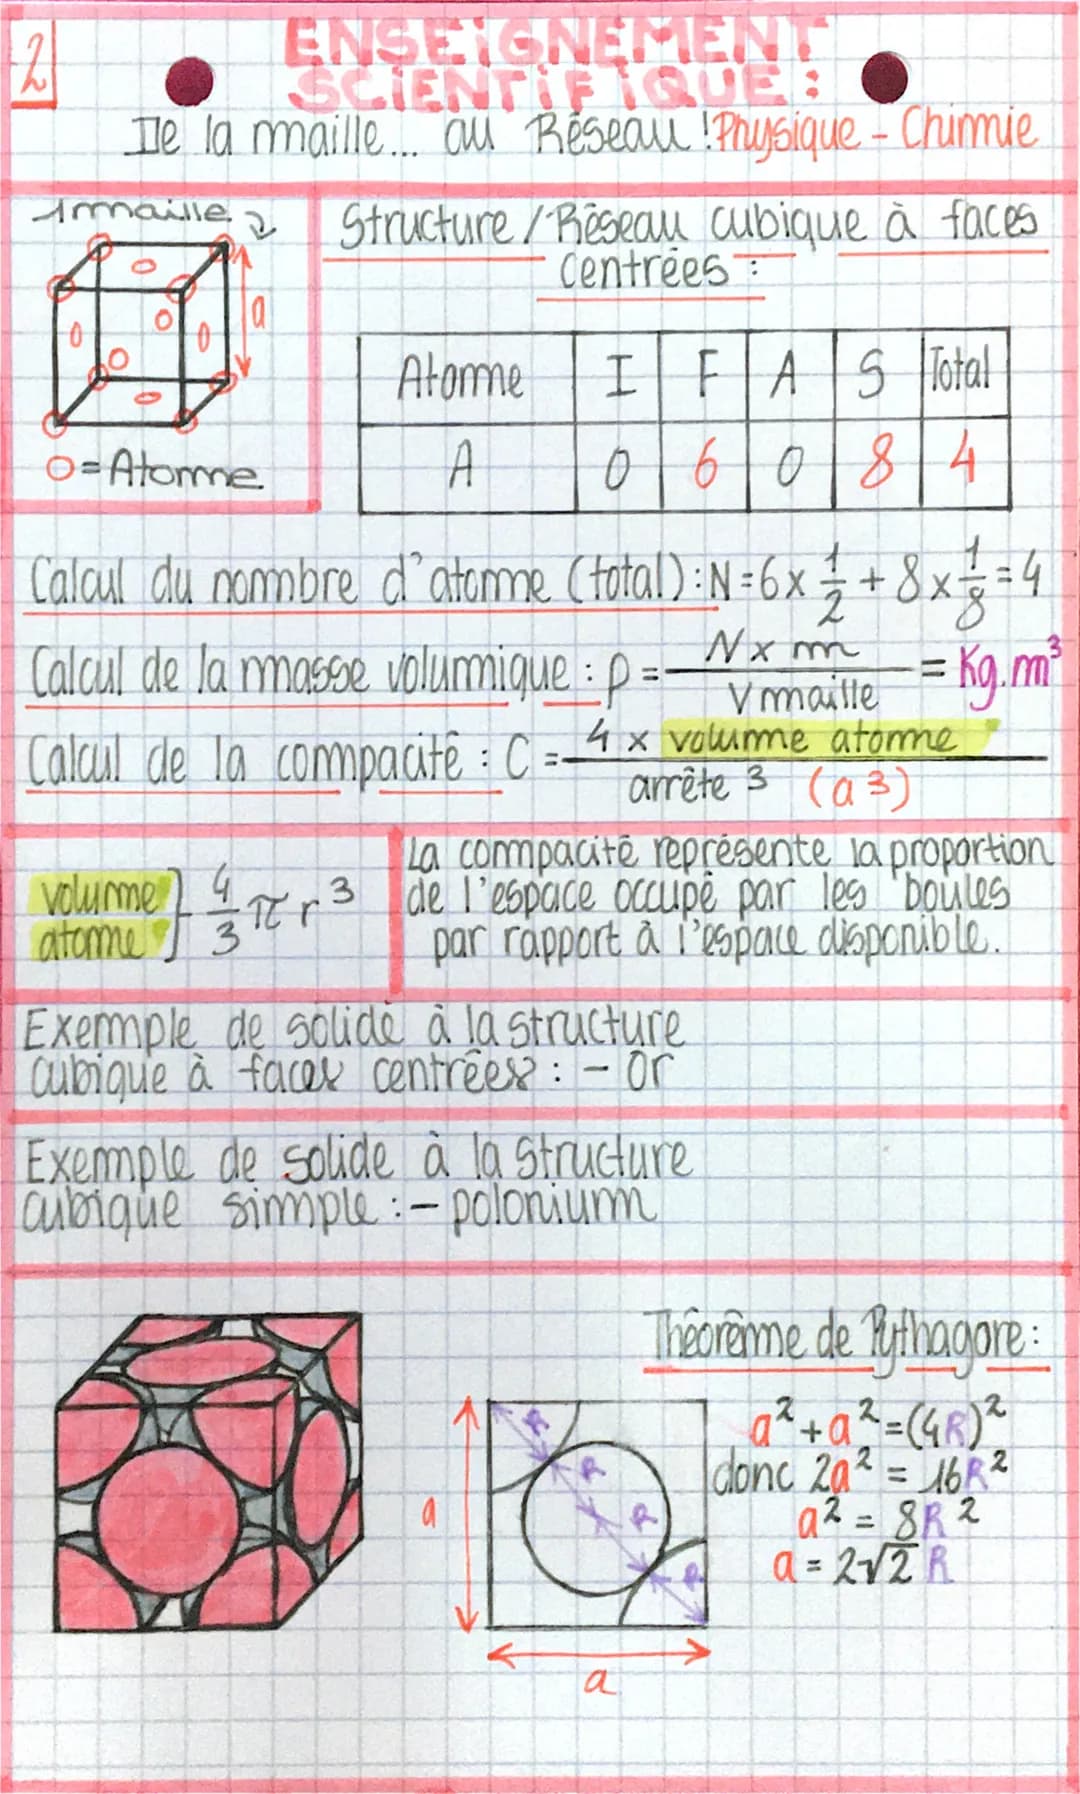 2
ENSEiGNEMENT
SCiENTiFiQUE :
De la maille... au Réseau ! Physique - Chimie
1 maille
a
O = Atome
Structure / Réseau cubique à faces
centrées :
Atome I F A S Total
A 0 6 0 8 4
Calcul du nombre d'atome (total) : N = 6 x 1/2 + 8 x 1/8 = 4
Calcul de la masse volumique : ρ = N x m / V maille = Kg.m³
Calcul de la compacité : C = 4 x volume atome / arrête 3 (a 3)
volume
atome } 4/3 π r 3
La compacité représente la proportion
de l'espace occupé par les boules
par rapport à l'espace disponible.
Exemple de solide à la structure
cubique à faces centrées : - Or
Exemple de solide à la structure
cubique simple : - polonium
Théorème de Pythagore :
a² + a² = (4R)²
donc 2a² = 16R²
a² = 8R²
a = 2√2 R
a
R
R
R
R
a